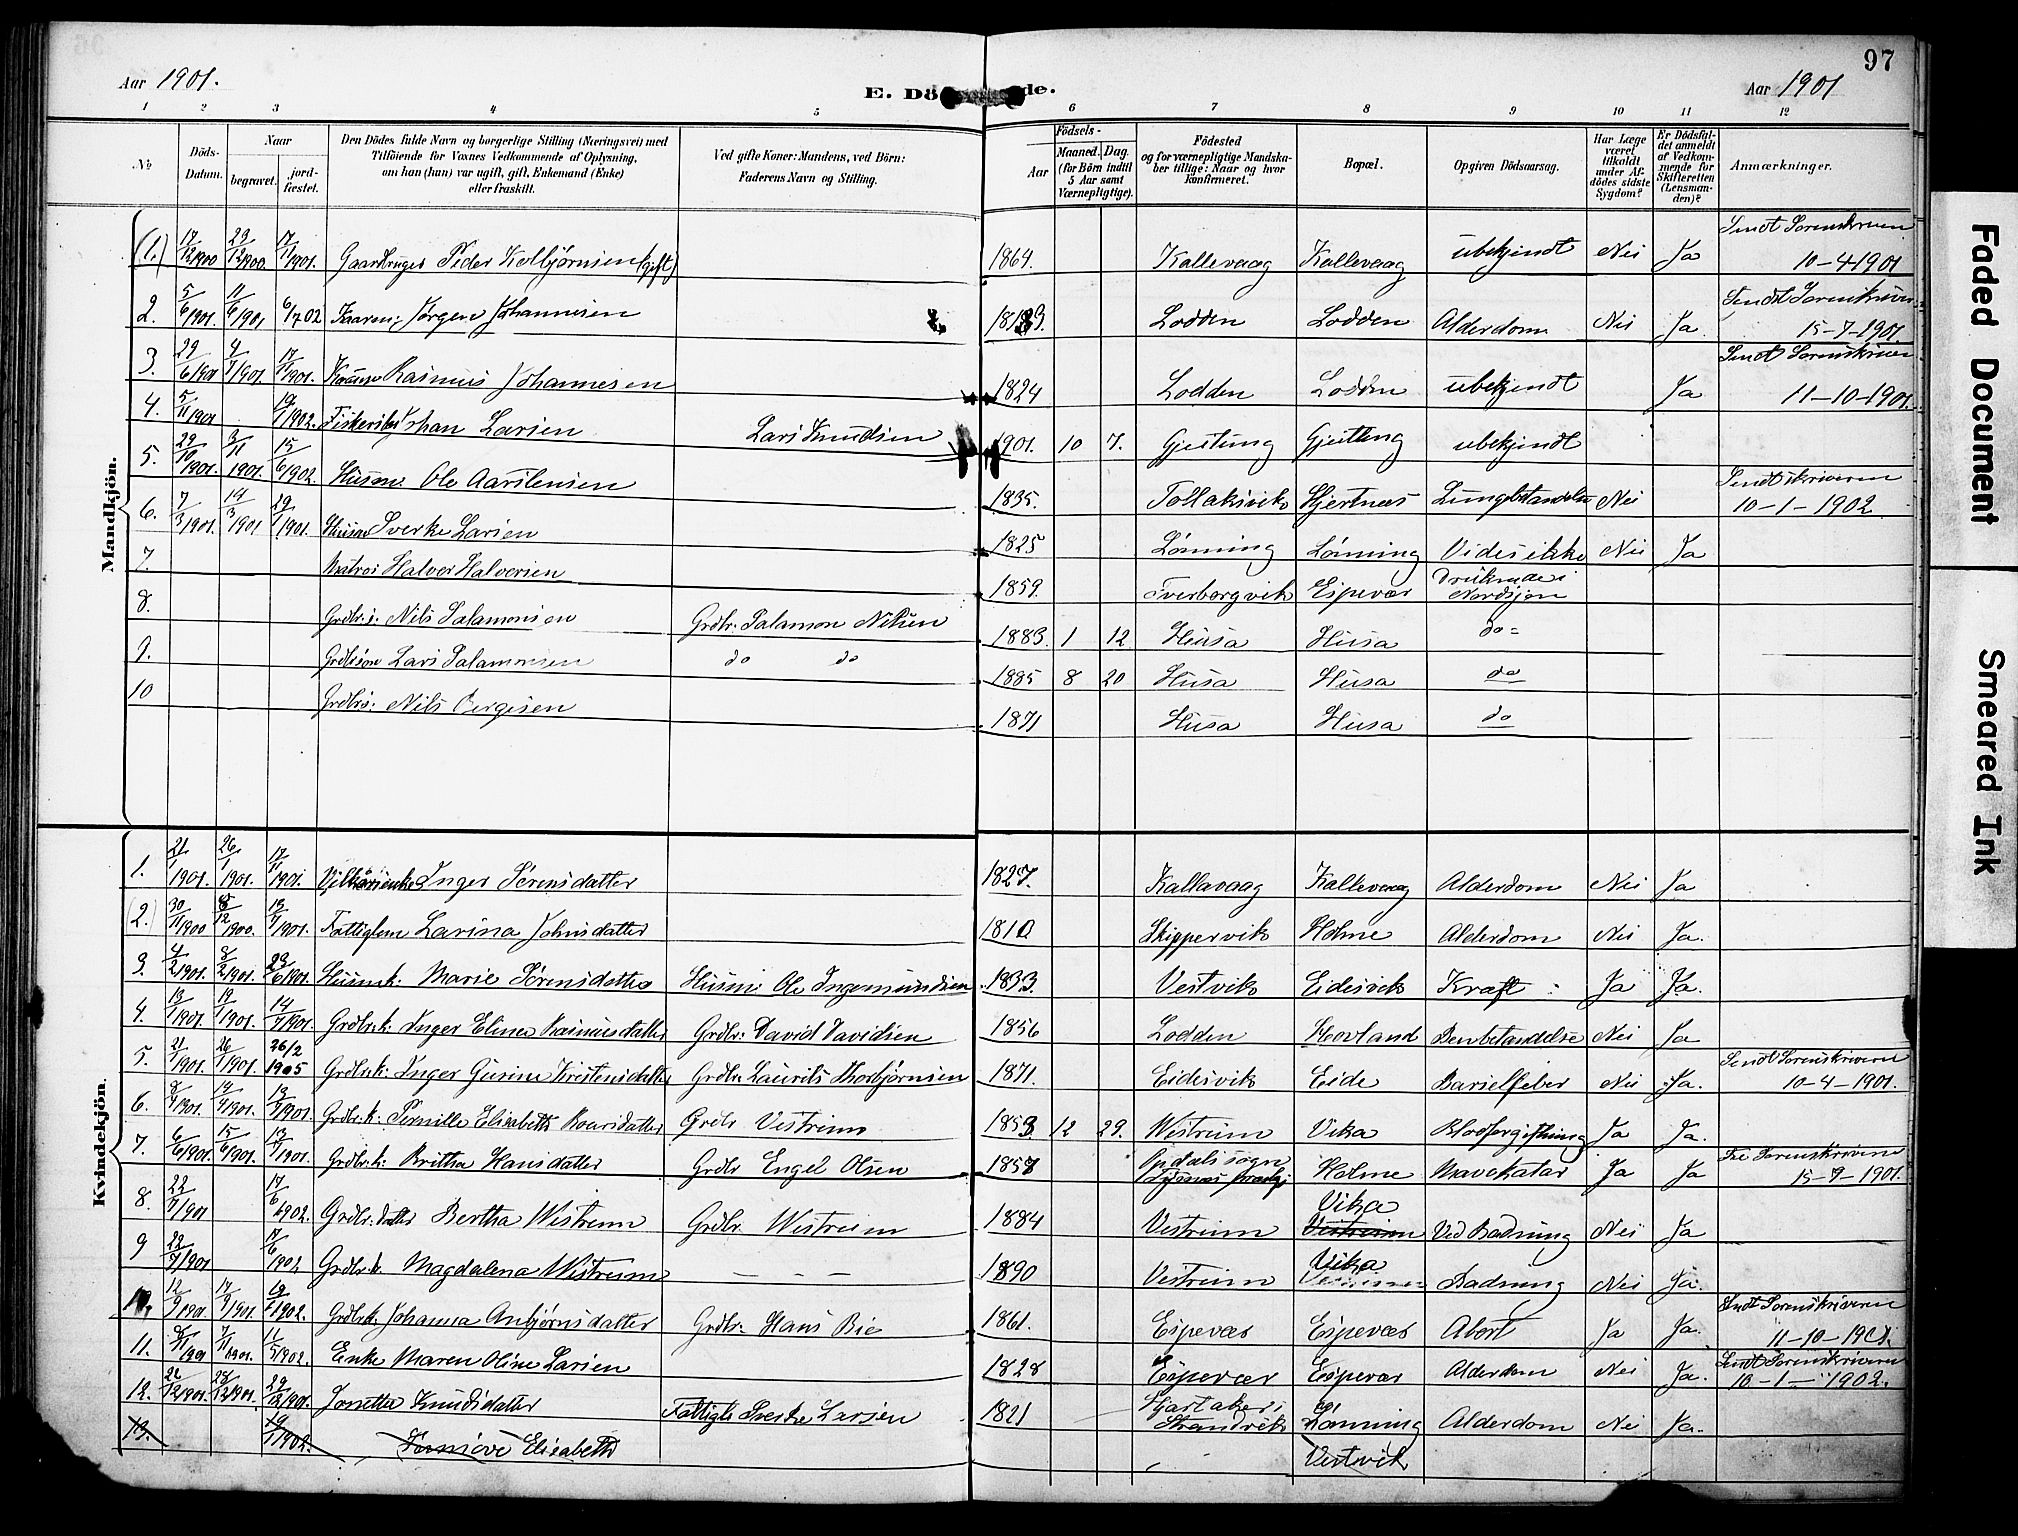 97
Aar 1901.
E. Dö de.
Aar 1901
1 2 3 4 5 6 7 8 9 10 11 12
No
Döds-Datum.
Naar
begravet.
jord-fæstet.
Den Dödes fulde Navn og borgerlige Stilling (Næringsvei) med
Tilföiende for Voxnes Vedkommende af Oplysning,
om han (hun) var ugift, gift, Enkemand (Enke)
eller fraskilt.
Ved gifte Koner: Mandens, ved Börn:
Faderens Navn og Stilling.
Födsels-
Aar
Maaned. Dag.
(for Börn indtil
5 Aar samt
Værnepligtige).
Födested
og for værnepligtige Mandska-
ber tillige: Naar og hvor
Konfirmeret.
Bopæl.
Opgiven Dödsaarsag.
Har Læge
været
tilkaldt
under Af-
dödes sidste
Sygdom?
Er Dödsfal-
det anmeldt
af Vedkom-
mende for
Skifteretten
(Lensman-
den)?
Anmærkninger.
Mandkjön.
(1.) 17/12 1900 23/12 1900. 17/4 1901. Gaardbruger Peder Kolbjørnsen (gift) 1864. Kallevaag Kallevaag ubekjendt Nei Ja Sendt Sorenskriveren 10-4-1901
2. 5/6 1901. 11/6 1901 6/7 02 Kaarm. Jørgen Johannesen Lodden Lodden Alderdom Nei Ja. Sendt Sorenskriver 15-7-1901.
3. 29/6 1901 4/7 1901. Rasmus Johannesen 1824 Lodden Lodden ubekjendt Ja Sendt Sorenskriver 11-10-1901.
4. 5/11 1901 1902. Johan Larsen Lars Knudsen 1901. 10 7. Gjeitung Gjeitung ubekjendt
5. 29/10 1901. 3/11 1901. 15/6 1902. Husm. Ole Aarstensen 1835. Tollaksvik Hjertnæs Lungebetændelse Nei Sendt skriveren 10-1-1902
6. 7/3 1901. 14/3 1901 Husm. Sverke Larsen 1825 Lønning Lønning Vides ikke Nei Ja
7 Matros Halver Halversen 1859. Tverborgvik Espevær Druknede i Nordsjøen
8. Grdbr. s. Nils Salamonsen Grdbr. Salamon Nilsen 1883. 1 12 Husa Husa do
9. Lars Salamonsen do do 8 20 Husa Husa do
10 Grdbrs. Nils Børgesen 1871 Husa Husa do
Kvindekjön.
1. 21/1 1901. 26/1 1901. 17/4 1901. Inger Sørensdatter 1827. Kallavaag Kallevaag Alderdom Nei Ja
(2.) 30/11 1900 8/12 1900. 13/7 1901. Fattiglem Larina Johnsdatter 1810 Skippervik Holme Alderdom Nei Ja.
3. 4/2 1901. 8/2 1901. 23/6 1901. Husmk. Marie Sørensdatter Husm. Ole Ingemundsen 1833. Vestvik Eidesvik Kræft Ja Ja.
4. 1901. 1901. 14/7 1901. Grdbr.k. Inger Eline Rasmusdatter Grdbr. David Davidsen 1856 Lodden Hovland Benbetændelse Nei Ja
5. 21/1 1901. 26/1 1901. 26/2 1905 Grdbr.k. Inger Gurine Kristensdatter Grdbr. Laurits Thorbjørnsen 1871. Eidesvik Eide Barselfeber Nei Ja. Sendt Sorenskriveren 10-4-1901.
6. 1901. 1901. 13/7 1901. Grdbr.k. Pernille Elisabeth Grdbr Vestreim 12 29. Westreim Vika Blodforgiftning Ja Ja.
7. 6/6 1901. 15/6 1901. 13/7 1901. Grdbr.k. Britha Hansdatter Grdbr Engel Olsen Opdals sogn Tysnes prstgj Holme Mavekatar Ja Ja Sorenskriveren 15-9-1901.
8. 22/7 1901 17/6 1902. Grdbr. datter Bertha Westreim Grdbr. Westreim 1884 Vestreim Vika Vestreim Ved Badning Nei Ja
9 22/7 1901 17/6 1902 Magdalena Westreim – – – 1890 Vestreim Vika Badning Nei Ja.
10. 12/9 1901. 17/9 1901. 1902. Grdbr.k. Johanna Anbjørnsdatter Grdbr. Hans Bie 1861. Espevær Espevær Abort Ja Ja. Sendt Sorenskriveren 11-10-1901.
11. 1901 7/11 1901. 11/5 1902. Enke Maren Oline Larsen 1828 Espevær Espevær Alderdom Nei Ja. Sendt Sorenskriveren 10-1-1902.
12. 22/12 1901. 28/12 1901. 29/12 1901. Jonetta Knudsdatter Fattigl. Sverke Larsen 1821 Strandvik Lønning Alderdom Nei Ja.
13. 19/1 1902. Elisabeth Vestvik
Faded Document
Smeared Ink